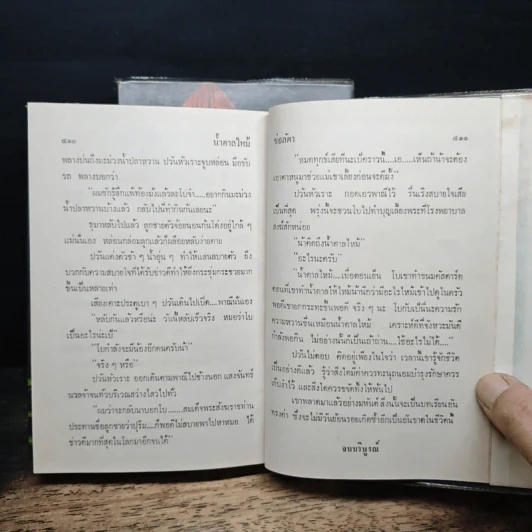 ๘๑๐ น้ำตาลไหม้
พลางบ่นถึงมะม่วงน้ำปลาหวาน ปวันหัวเราะจูบหล่อน มือขับ
รถ พลางบอกว่า
"ผมชักรู้สึกแพ้ท้องมั่งแล้วละโบจ๋า.....อยากกินมะม่วง
น้ำปลาหวานบ้างแล้ว กลับไปนี่ทำกินกันเลยนะ"
ชุมาหลับไปแล้ว ลูกชายตัวจ้อยนอนกินโค่งอยู่ใกล้ ๆ
แม่นั่นเอง หล่อนกล่อมลูกแล้วก็เผลอหลับง่ายดาย
ปวันแต่งตัวช้า ๆ น้ำอุ่น ๆ ทำให้แสนสบายตัว ยิ่ง
บวกกับความสบายใจที่ได้รับข่าวดีทำให้อิ่งกระชุ่มกระชวยมาก
ขึ้นเป็นหลายเท่า
เสียงเคาะประตูเบา ๆ ปวันเดินไปเปิด.....พาณีนั่นเอง
"หลับกันแล้วหรือน่ะ วันนี้หลับเร็วจริง หมอว่าโบ
เป็นอะไรน่ะเบ๊"
"โบกำลังจะมีน้องอีกคนครับน้า"
"จริง ๆ หรือ"
ปวันหัวเราะ ออกเดินตามพาณีไปข้างนอก แสงจันทร์
นวลจ้าจนทั่วบริเวณสว่างไสวไปทั่ว
"ผมว่าจะกลับมาบอกโบ.......สมเด็จพระสังฆราชท่าน
ประทานชื่อลูกชายว่าปุริม.....ก็พอดีไม่สบายพาไปหาหมอ ได้
ข่าวดีมากที่สุดในโลกมาอีกจนได้"
ช่อลัดา ๘๑๑
"หมดทุกข์เสียทีนะเบ๊คราวนี้.....เอ.....เห็นถ้าน้าจะต้อง
เอาตาหนูมาช่วยแม่เขาเลี้ยงก่อนจะดีมั้ง"
ปวันหัวเราะ กอดเอวพาณีไว้ รื่นเริงสบายใจเสีย
เป็นที่สุด พรุ่งนี้จะชวนโบไปทำบุญเลี้ยงพระที่โรงพยาบาล
สงฆ์สักหน่อย
"น้าคิดถึงน้ำตาลไหม้"
"อะไรนะครับ"
"น้ำตาลไหม้.....เมื่อตอนเย็น โบเขาทำขนมคัสตาร์ด
ตอนที่เขาทำน้ำตาลไหม้ไว้ให้ไหม้น่ะน้าว่ามีอะไรไหม้เข้าไปดูในครัว
พอดีเขายกกระทะขึ้นพอดี จริง ๆ นะ โบกับเบ๊นี่นะความรัก
ความหวานชื่นเหมือนน้ำตาลไหม้ เคราะห์ดีที่จังหวะมันดี
กำลังพอกิน ไม่อย่างนั้นก็เป็นเถ้าถ่าน.....ใช้อะไรไม่ได้....."
ปวันไม่ตอบ คิดอยู่เพียงในใจว่า เวลานี้เขารู้จักชีวิต
เป็นอย่างดีแล้ว รู้ว่าสิ่งใดมีค่าควรทะนุถนอมบำรุงรักษาควร
เก็บงำไว้ และสิ่งใดควรขจัดทิ้งให้พ้นไป
เขาพลาดมาแล้วอย่างมหันต์ สิ่งนั้นจะเป็นบทเรียนอัน
ทรงค่า ซึ่งจะไม่มีวันย้อนรอยเกิดซ้ำอีกเป็นอันขาดในชีวิตนี้
จบบริบูรณ์